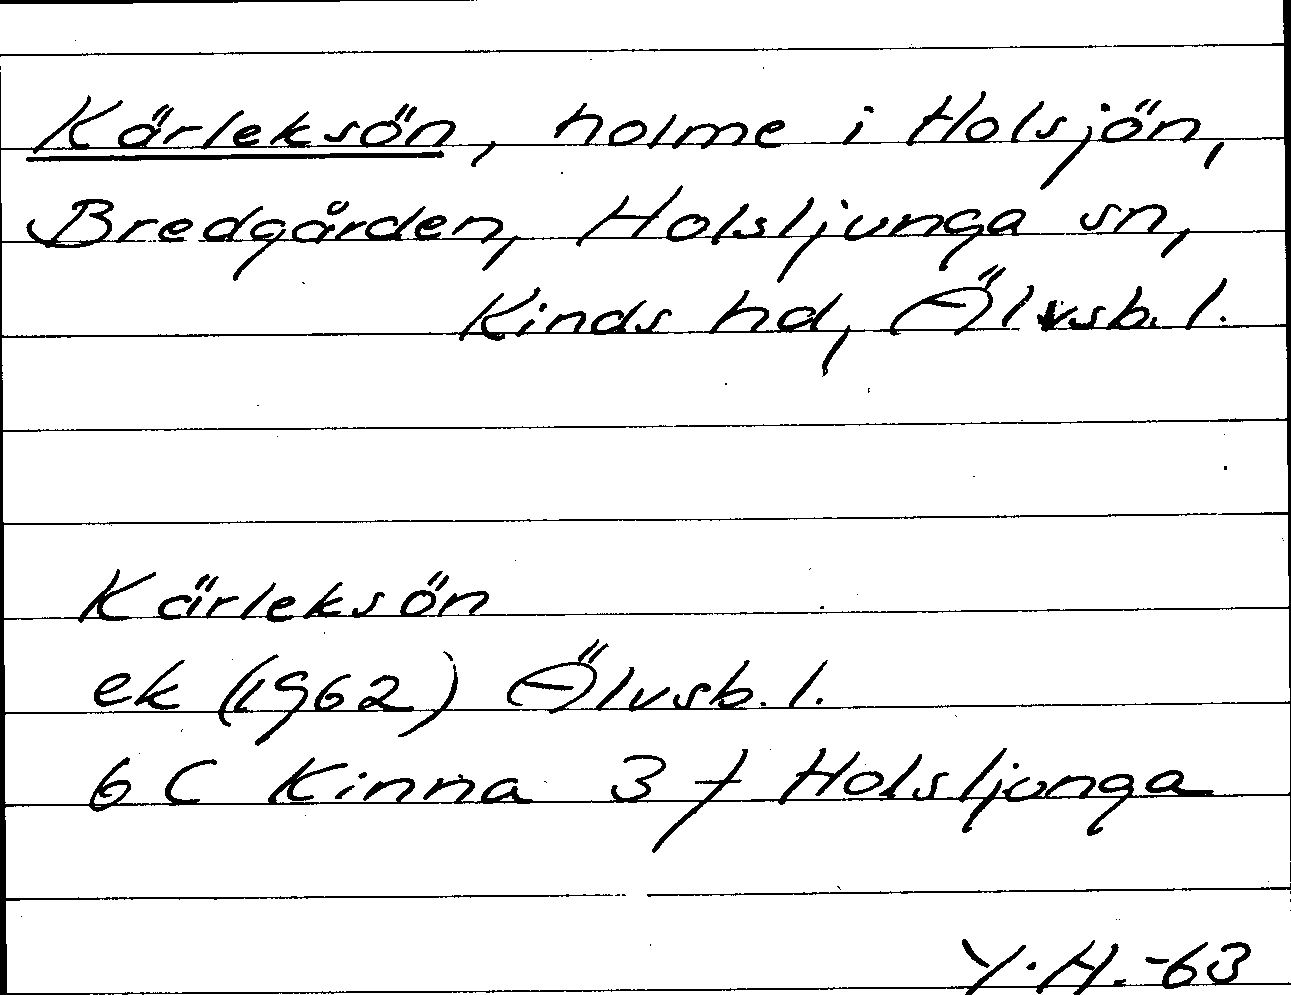 Kärleksön, holme i Holsjön,
Bredgården, Holsljunga sn,
Kinds hd, Älvsb. l.
Kärleksön
ek (1962) Älvsb. l.
6 C Kinna 3 f Holsljunga
Y.H.-63